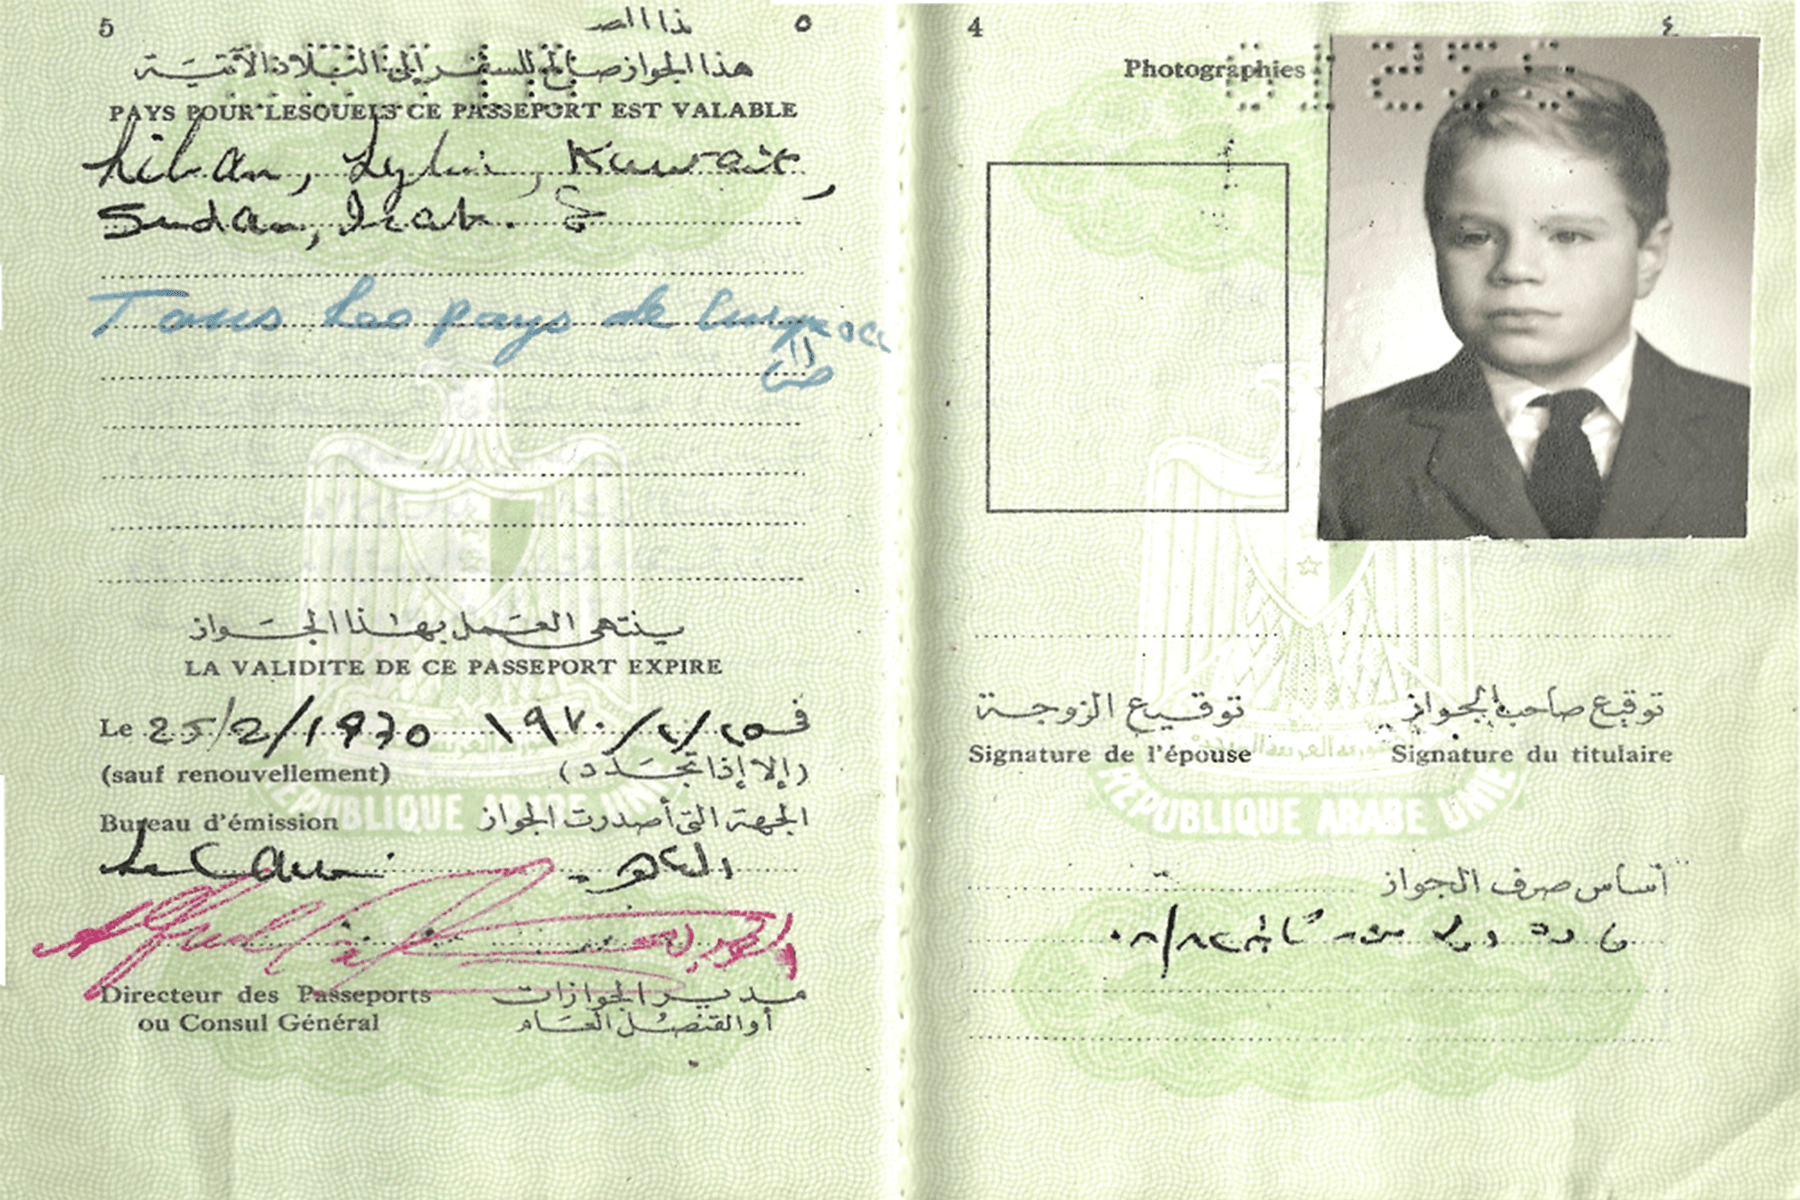 5
٥
هذا الجواز صالح للسفر إلى البلاد الآتية
PAYS POUR LESQUELS CE PASSEPORT EST VALABLE
Liban, Lybie, Kuwait,
Sudan, Irak.
Tous les pays de
ينتهي العمل بهذا الجواز
LA VALIDITE DE CE PASSEPORT EXPIRE
Le 25/2/1970 في ٢٥/٢/١٩٧٠
(sauf renouvellement) (إلا إذا تجدد)
Bureau d'émission الجهة التي أصدرت الجواز
Le Caire القاهرة
Directeur des Passeports مدير الجوازات
ou Consul Général أو القنصل العام
REPUBLIQUE ARABE UNIE
4
٤
Photographies
توقيع الزوجة توقيع صاحب الجواز
Signature de l'épouse Signature du titulaire
REPUBLIQUE ARABE UNIE
أساس صرف الجواز